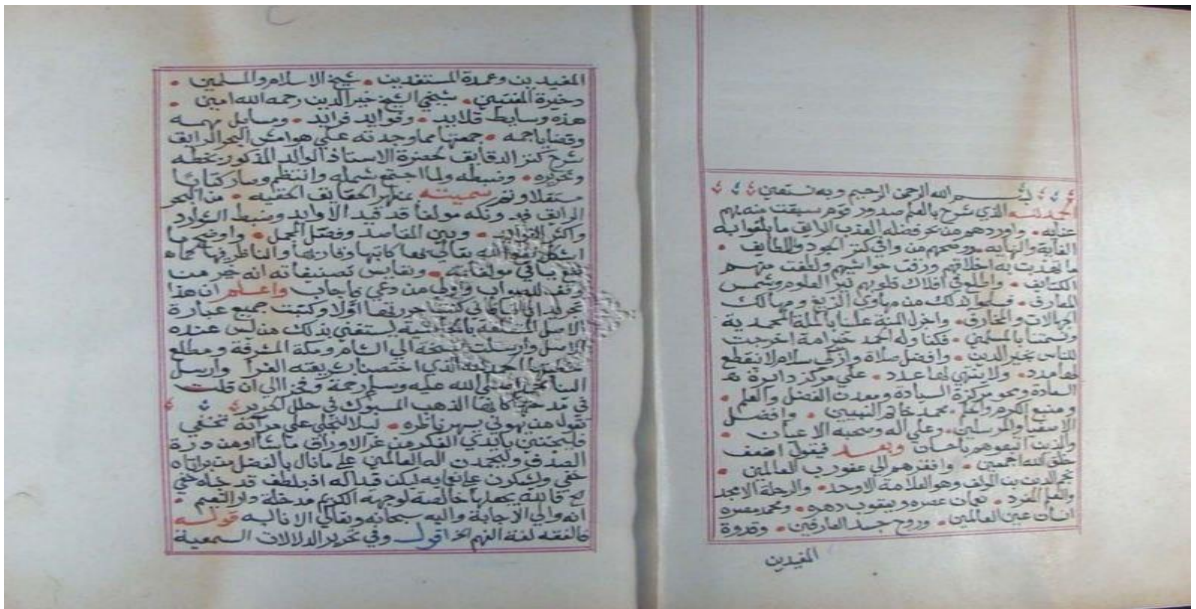 بسم الله الرحمن الرحيم وبه نستعين
الحمد لله الذي شرح بالعلم صدور قوم سبقت منه بهم
عناية • واوردهم من بحر فضله العذب الرايق ما بلغوا به
الغاية والنهاية • ومنحهم من وافي كنز الجود واللطايف •
ما تهذبت به اخلاقهم ورقت حواشيهم ولطفت منهم
الكثايف • واطلع في افلاك قلوبهم قمر العلوم وشمس
المعارف • فسلموا بذلك من مهاوي الزيغ ومهالك
الجهالات والمخارف • واجزل المنة علينا بالملة المحمدية
وسمنا بالمسلمين • فكنا وله الحمد خير امة اخرجت
للناس بخير الدين • وافضل صلاة وازكي سلام لا نقطع
لهما مدد • ولا ينتهي لهما عدد • علي مركز دايرة
السعادة ومحور مركزة السيادة ومعدن الفضل والعلم •
ومنبع الكرم والحلم • محمد خاتم النبيين • وافضل
الاصفيا والمرسلين • وعلي آله وصحبه الاعيان •
والذين اتبعوهم باحسان وبعد فيقول اضعف
خلق الله اجمعين • وافقرهم الي عفو رب العالمين •
نجم الدين بن خير الدين وهو العلامة الاوحد • والرحلة الامجد
والعلم المفرد • نعمان عصره ويعقوب دهره • ومحمد مصره
انسان عين العالمين • وروح جسد العارفين • وقدوة
المفيدين
المفيدين وعمدة المستفيدين • شيخ الاسلام والمسلمين •
ذخيرة المفتيين • شيخي الشيخ خير الدين رحمه الله امين •
هذه وسايط قلايد • وفوايد فرايد • ومسايل مهمه
وقضايا جمه • جمعتها مما وجدته علي هوامش البحر الرايق
شرح كنز الدقايق لحضرة الاستاذ الوالد المذكور بخطه
وتحريره • وضبطه ولما اجتمع شمله وانتظم وصار كتابا
مستقلا وتم سميته بمظهر الحقايق الخفيه • من البحر
الرايق فيه ونكه مولفا قد قيد الاوابد وضبط الشوارد
واكثر الفوايد • وبين المقاصد وفصل المجمل • واوضح ما
اشكل نفع الله تعالي بها كاتبها وقارئها والناظر فيها كما
نفع بباقي مولفاته • ونفايس تصنيفاته انه خير من
وفق للصواب واولي من دعي فاجاب واعلم ان هذا
تحرير ثاني فاني كنت حررتها اولا وكتبت جميع عبارة
الاصل المتعلقة بالحاشية ليستغني بذلك من ليس عنده
الاصل وارسلت نسخة الي الشام ومكة المشرفة ومطلع
خطبتها الحمد لله الذي اختصنا بشريفته الغرا وارسل
الينا محمدا صلي الله عليه وسلم رحمة وذخرا الي ان قلت
في مدحها كانها الذهب المسبوك في حلل الحرير
تقول من يهوني يسهر ناظره • ليلا لتجلي علي مرآته تحفي
فليجتني بايدي الفكر من غرر الاوراق ما شا ومن درة
الصدف وليحمدن اله العالمين علي ما نال بالفضل من
خفي وليشكرن
فالله يجعلها خالصة لوجهه الكريم مدخلة دار النعيم •
انه ولي الاجابة واليه سبحانه وتعالي الانابه قوله
فالفقه لغة الفهم الخ اقول وفي تحرير الدلالات السمعية